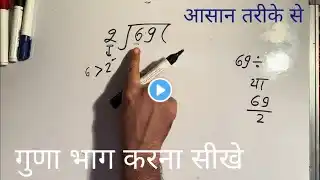 आसान तरीके से
2)69(
6>2
69÷
या
69
2
गुणा भाग करना सीखे